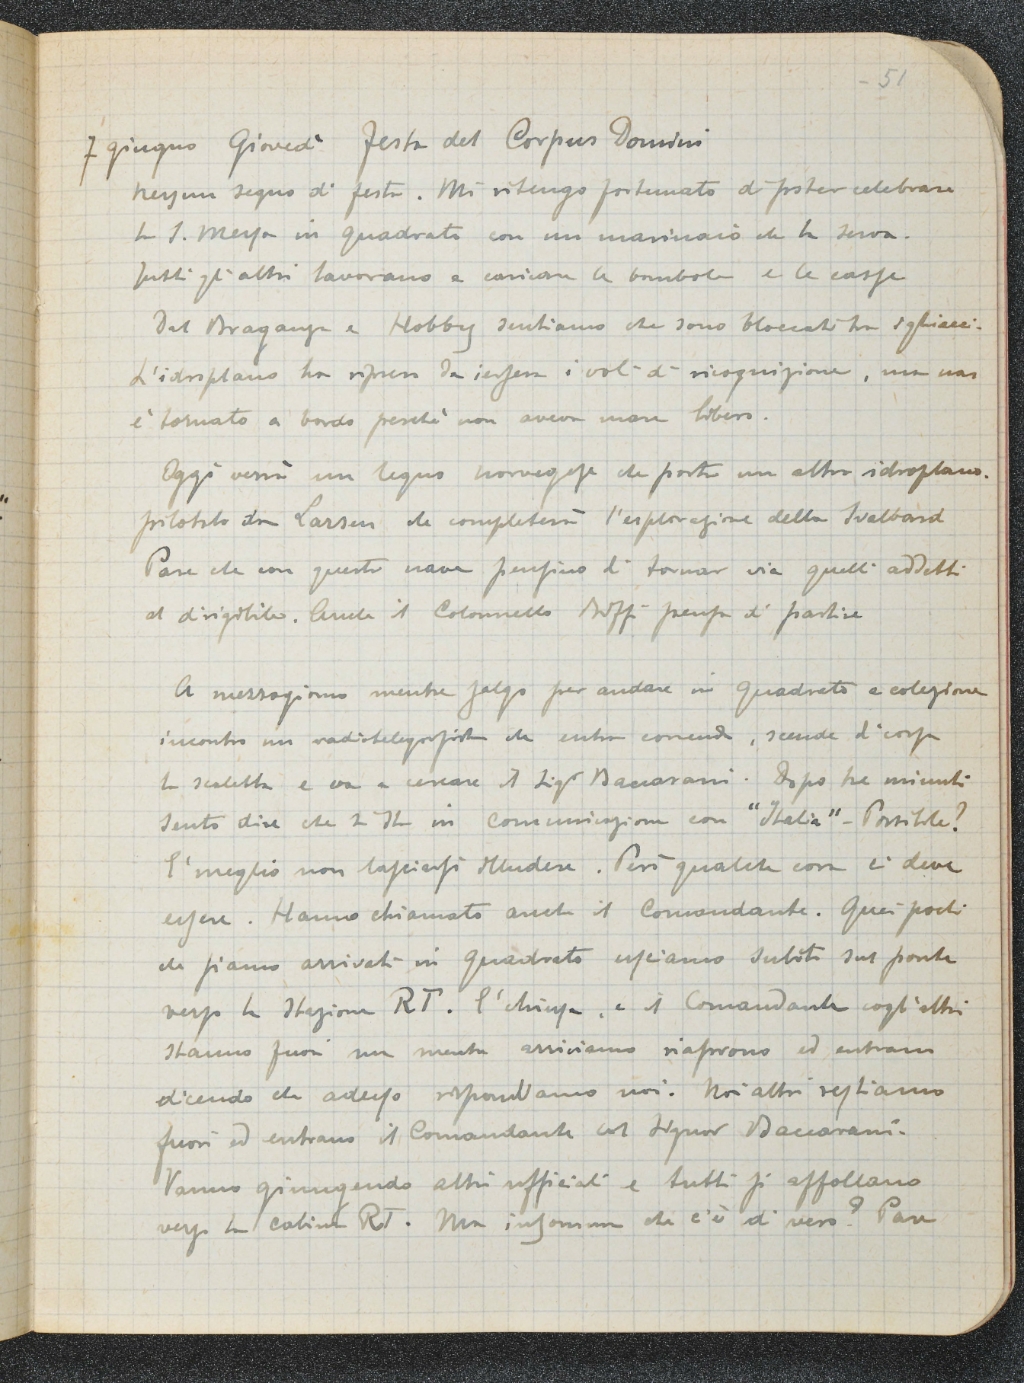 - 51
7 giugno Giovedì Festa del Corpus Domini
Nessun segno di festa. Mi ritengo fortunato di poter celebrare
la S. Messa in quadrato con un marinaio che la serva.
Tutti gli altri lavorano a caricare le bombole e le casse
Dal Braganza e Hobby sentiamo che sono bloccati tra i ghiacci.
L'idroplano ha ripreso da iersera i voli di ricognizione, ma non
è tornato a bordo perché non aveva mare libero.
Oggi verrà un legno norvegese che porta un altro idroplano.
pilotato da Larsen che completerà l'esplorazione della Svalbard
Pare che con questa nave pensino di tornar via quelli addetti
al dirigibile. Anche il Colonnello pensa di partire
A mezzogiorno mentre salgo per andare in quadrato a colezione
incontro un radiotelegrafista che entra correndo, scende di corsa
la scaletta e va a cercare il Sigr Baccarani. Dopo tre minuti
sento dire che in comunicazione con "Italia" - Possibile?
E' meglio non lasciarsi illudere. Però qualche cosa ci deve
essere. Hanno chiamato anche il Comandante. Quei pochi
che siamo arrivati in quadrato usciamo subito sul ponte
verso la Stazione RT. E' chiusa, e il Comandante cogli altri
stanno fuori ma mentre arriviamo riaprono ed entrano
dicendo che adesso rispondiamo noi. Noi altri restiamo
fuori ed entrano il Comandante col Signor Baccarani.
Vanno giungendo altri ufficiali e tutti si affollano
verso la cabina RT. Ma insomma che c'è di vero? Pare